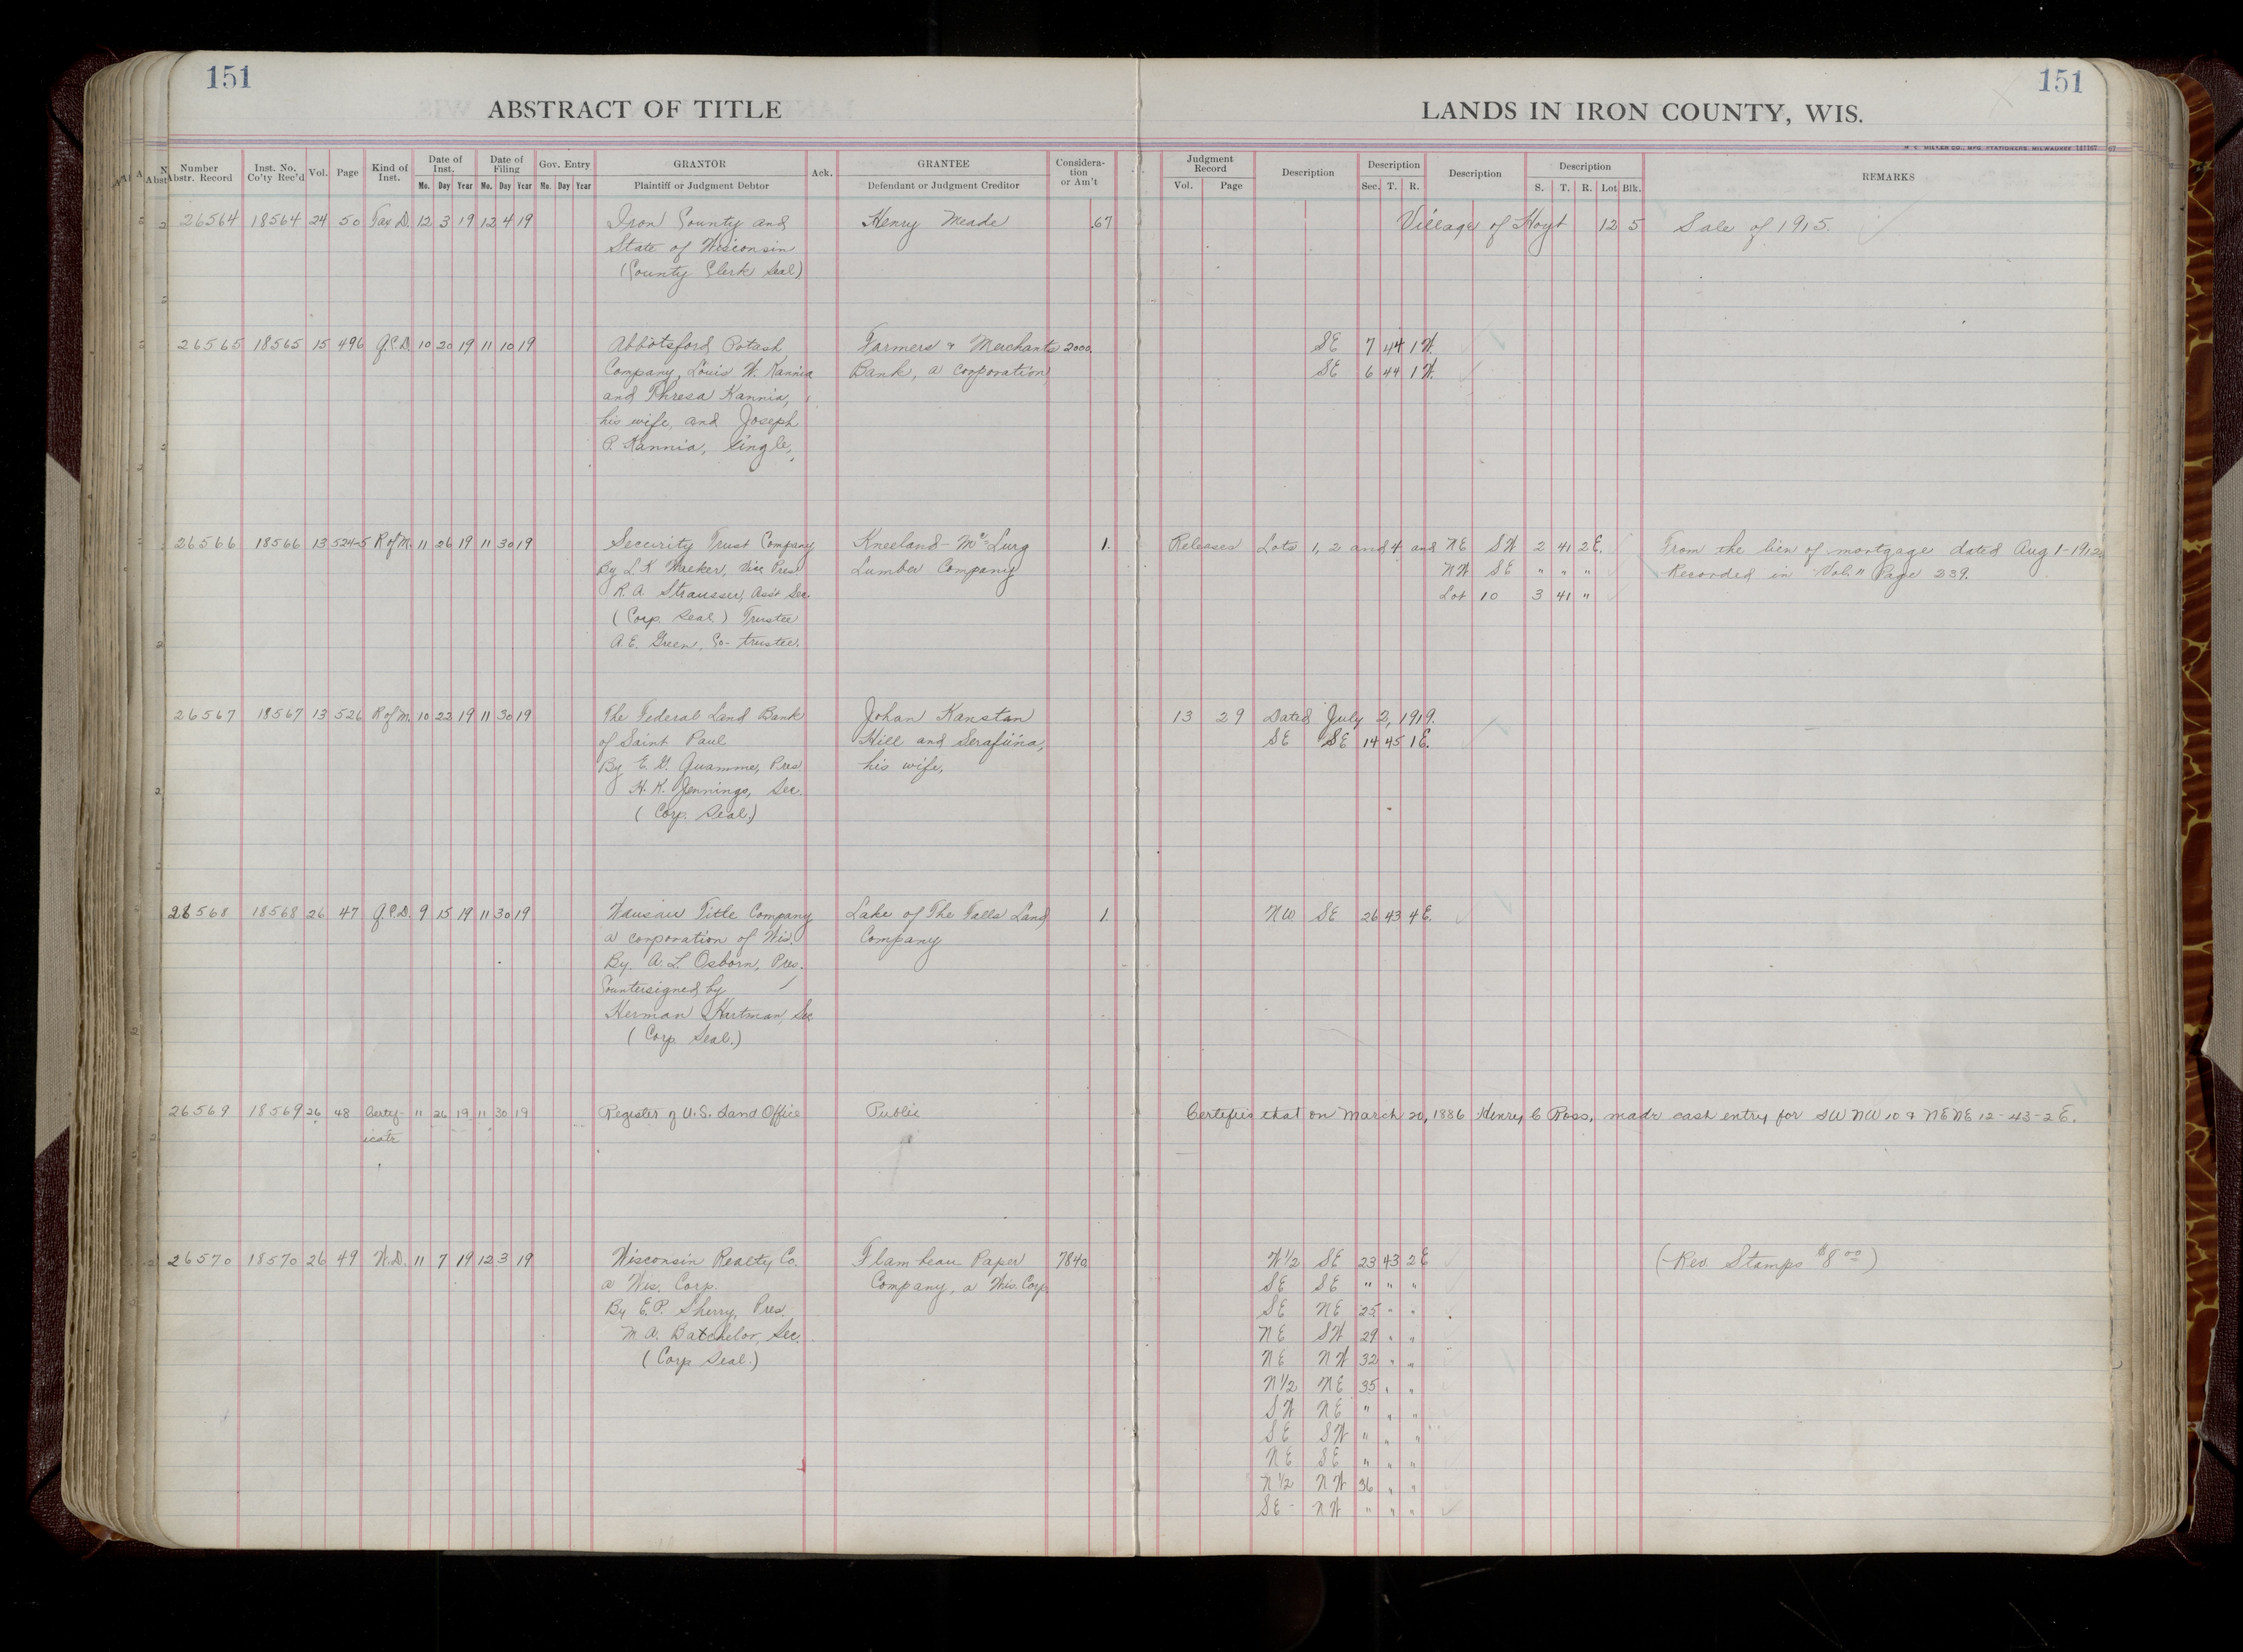 151
151
ABSTRACT OF TITLE
LANDS IN IRON COUNTY, WIS.
Number Abstr. Record | Inst. No. Co'ty Rec'd | Vol. | Page | Kind of Inst. | Date of Inst. Mo. Day Year | Date of Filing Mo. Day Year | Gov. Entry Mo. Day Year | GRANTOR Plaintiff or Judgment Debtor | Ack. | GRANTEE Defendant or Judgment Creditor | Considera-tion or Am't | Judgment Record Vol. Page | Description | Description Sec. T. R. | Description | Description S. T. R. Lot Blk. | REMARKS
26564 18564 24 50 Tax D. 12 3 19 12 4 19 Iron County and Henry Meade .67 Village of Hoyt 12 5 Sale of 1915.
State of Wisconsin
(County Clerk Seal)
26565 18565 15 496 Q.C.D. 10 20 19 11 10 19 Abbotsford Potash Farmers & Merchants 2000. SE 7 44 1 W.
Company, Louis W. Kannia Bank, a corporation SE 6 44 1 W.
and Thresa Kannia,
his wife, and Joseph
P. Kannia, single,
26566 18566 13 524-5 R of M. 11 26 19 11 30 19 Security Trust Company Kneeland-McLurg 1. Releases Lots 1, 2 and 4 and NE SW 2 41 2 E. From the lien of mortgage dated Aug 1-1912
By L. K. Vice Pres. Lumber Company NW SE " " " Recorded in Vol. " Page 239.
R. A. Strausser, Ass't Sec. Lot 10 3 41 "
(Corp. Seal.) Trustee
A. E. Green, Co-trustee.
26567 18567 13 526 R of M. 10 22 19 11 30 19 The Federal Land Bank Johan Kanstan 13 29 Dated July 2, 1919.
of Saint Paul Hill and Serafiina, SE SE 14 45 1 E.
By E. G. Quamme, Pres his wife,
H. K. Jennings, Sec.
(Corp. Seal.)
26568 18568 26 47 Q.C.D. 9 15 19 11 30 19 Wausau Title Company Lake of The Falls Land 1. NW SE 26 43 4 E.
a corporation of Wis. Company
By A. L. Osborn, Pres.
Countersigned by
Herman Hartman, Sec
(Corp Seal.)
26569 18569 26 48 Certif- 11 26 19 11 30 19 Register of U.S. Land Office Public Certifies that on March 20, 1886 Henry C Ross, made cash entry for SW NW 10 & NE NE 12-43-2 E.
icate
26570 18570 26 49 W.D. 11 7 19 12 3 19 Wisconsin Realty Co. Flambeau Paper 7840. W 1/2 SE 23 43 2 E (Rev. Stamps $8 00)
a Wis. Corp. Company, a Wis. Corp. SE SE " " "
By E. P. Sherry, Pres. SE NE 25 " "
M. A. Batchelor, Sec. NE SW 29 " "
(Corp Seal.) NE NW 32 " "
N 1/2 NE 35 " "
SW NE " " "
SE SW " " "
NE SE " " "
N 1/2 NW 36 " "
SE NW " " "